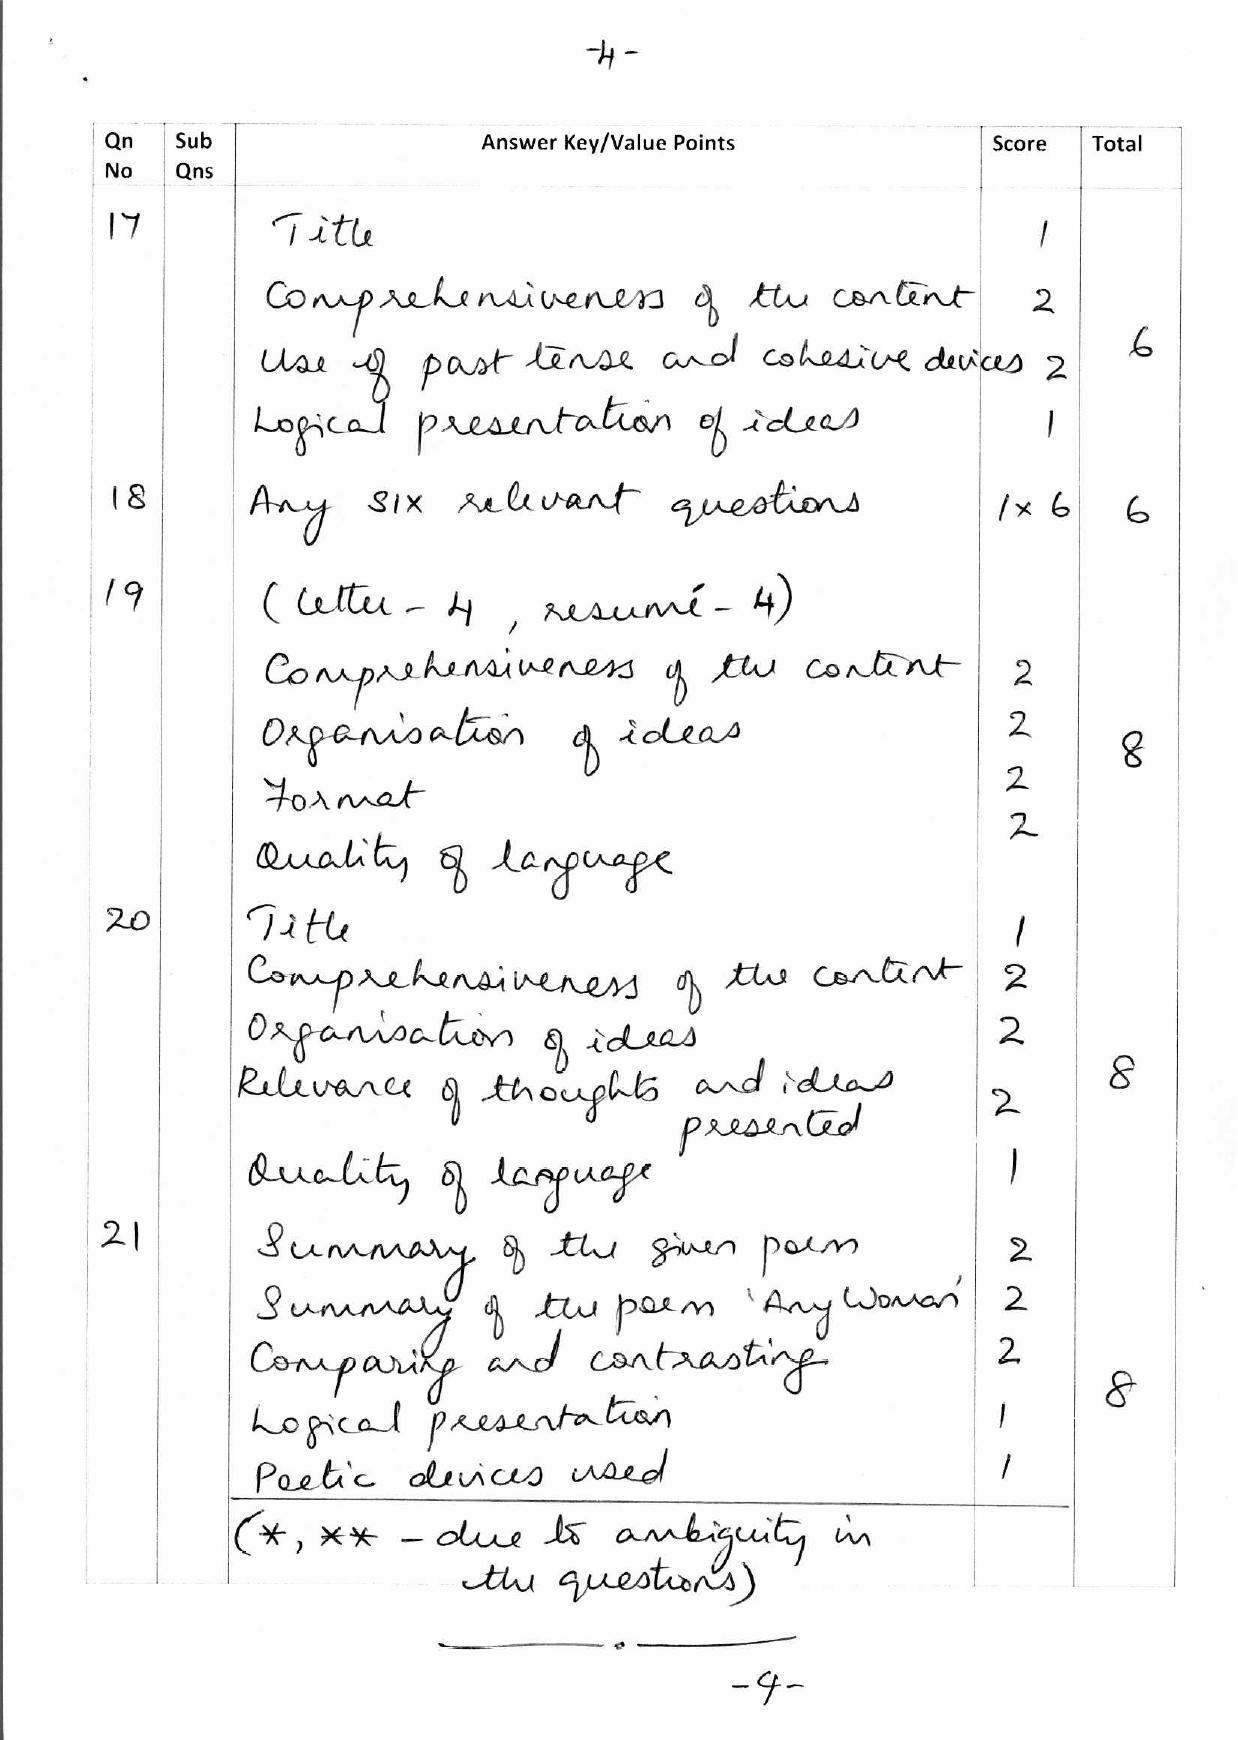 -4-
Qn No Sub Qns Answer Key/Value Points Score Total
17 Title 1
Comprehensiveness of the content 2
Use of past tense and cohesive devices 2 6
Logical presentation of ideas 1
18 Any six relevant questions 1 x 6 6
19 (Letter - 4, resumé - 4)
Comprehensiveness of the content 2
Organisation of ideas 2 8
Format 2
Quality of language 2
20 Title 1
Comprehensiveness of the content 2
Organisation of ideas 2
Relevance of thoughts and ideas 8
presented 2
Quality of language 1
21 Summary of the given poem 2
Summary of the poem 'Any Woman' 2
Comparing and contrasting 2
8
Logical presentation 1
Poetic devices used 1
(*, ** - due to ambiguity in
the questions)
-9-